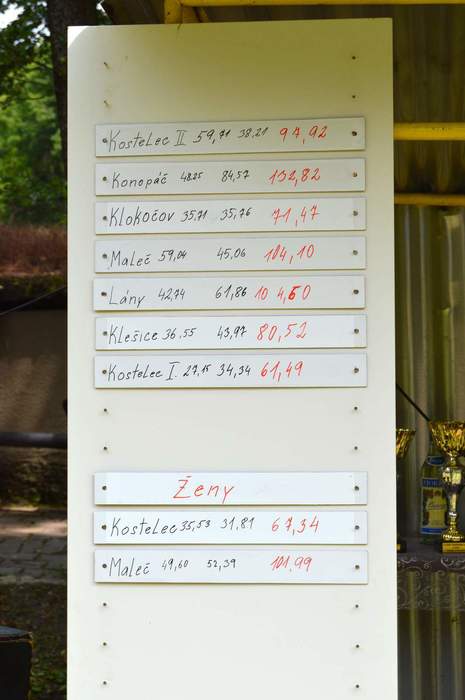 Kostelec II 59,71 38,21 97,92
Konopáč 48.25 84,57 132,82
Klokočov 35,71 35,76 71,47
Maleč 59,04 45,06 104,10
Lány 42,74 61,86 10 4,60
Klešice 36,55 43,97 80,52
Kostelec I. 27,15 34,34 61,49
Ženy
Kostelec 35,53 31,81 67,34
Maleč 49,60 52,39 101,99